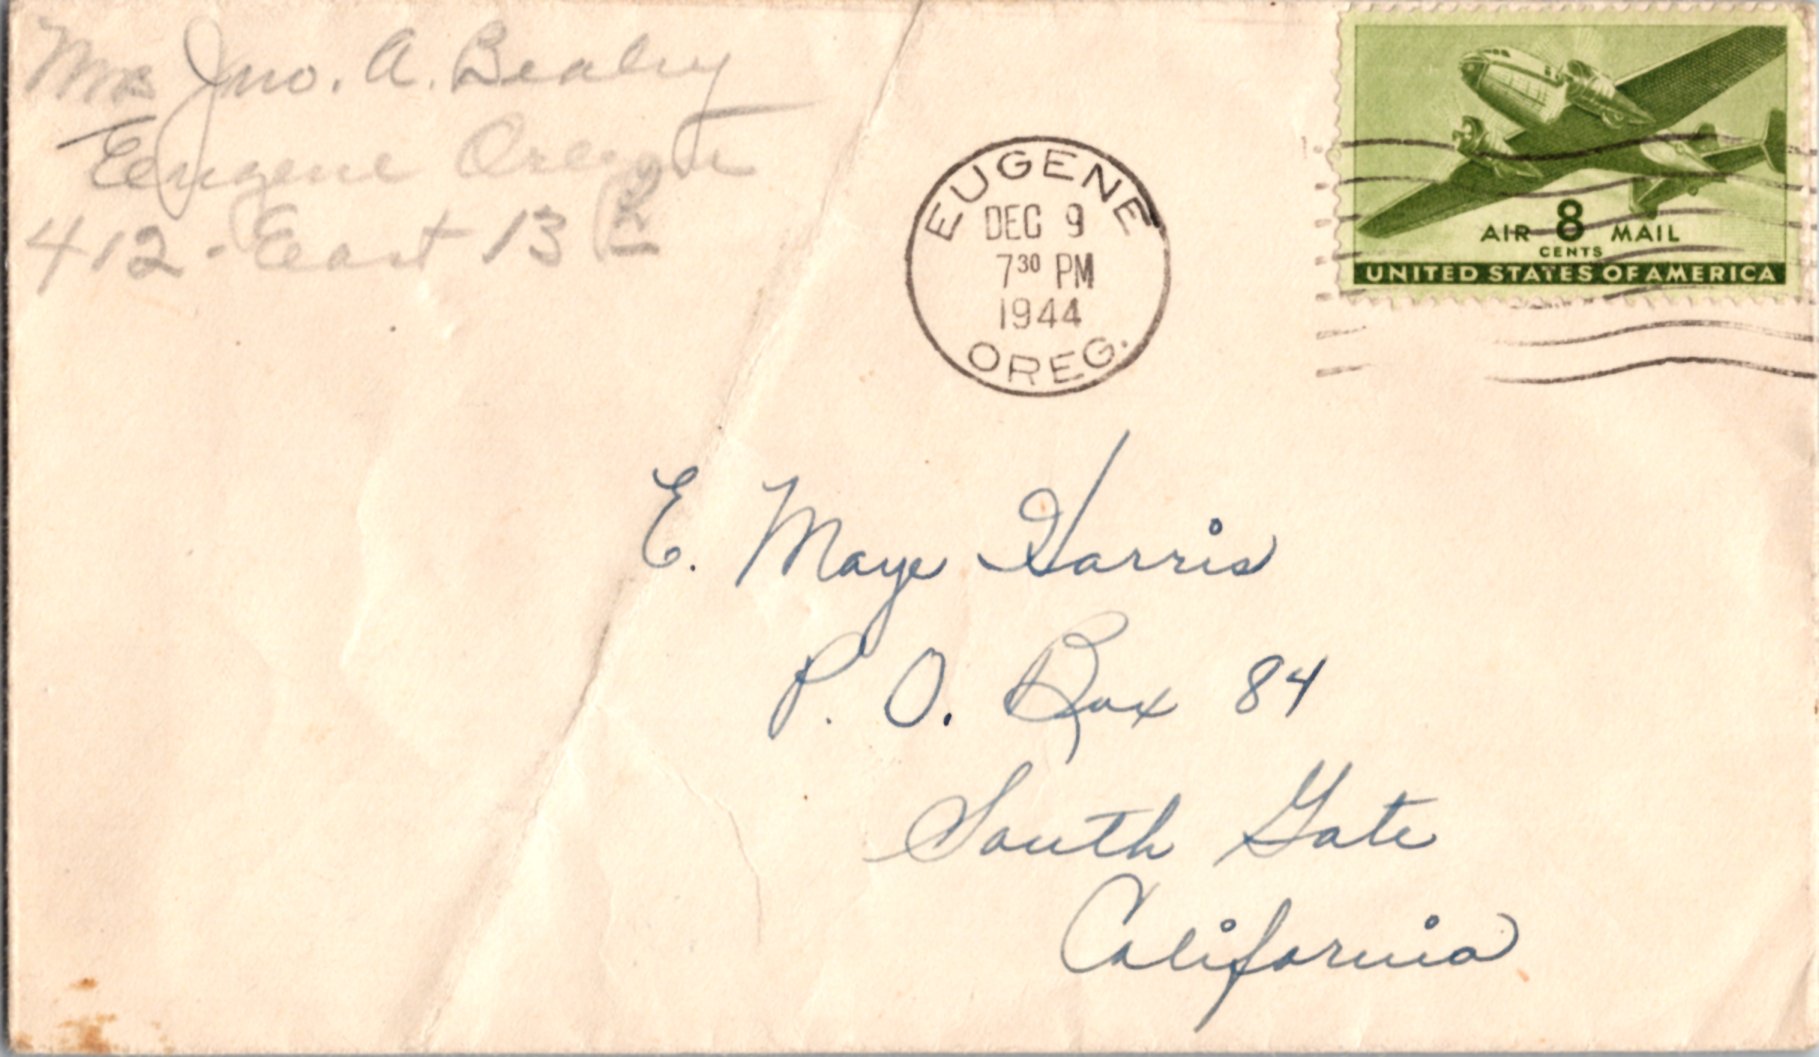 Mrs Jno. A. Bealey
Eugene Oregon
412 - East 13th
EUGENE
DEC 9
7 30 PM
1944
OREG.
AIR 8 MAIL
CENTS
UNITED STATES OF AMERICA
E. Maye Harris
P. O. Box 84
South Gate
California